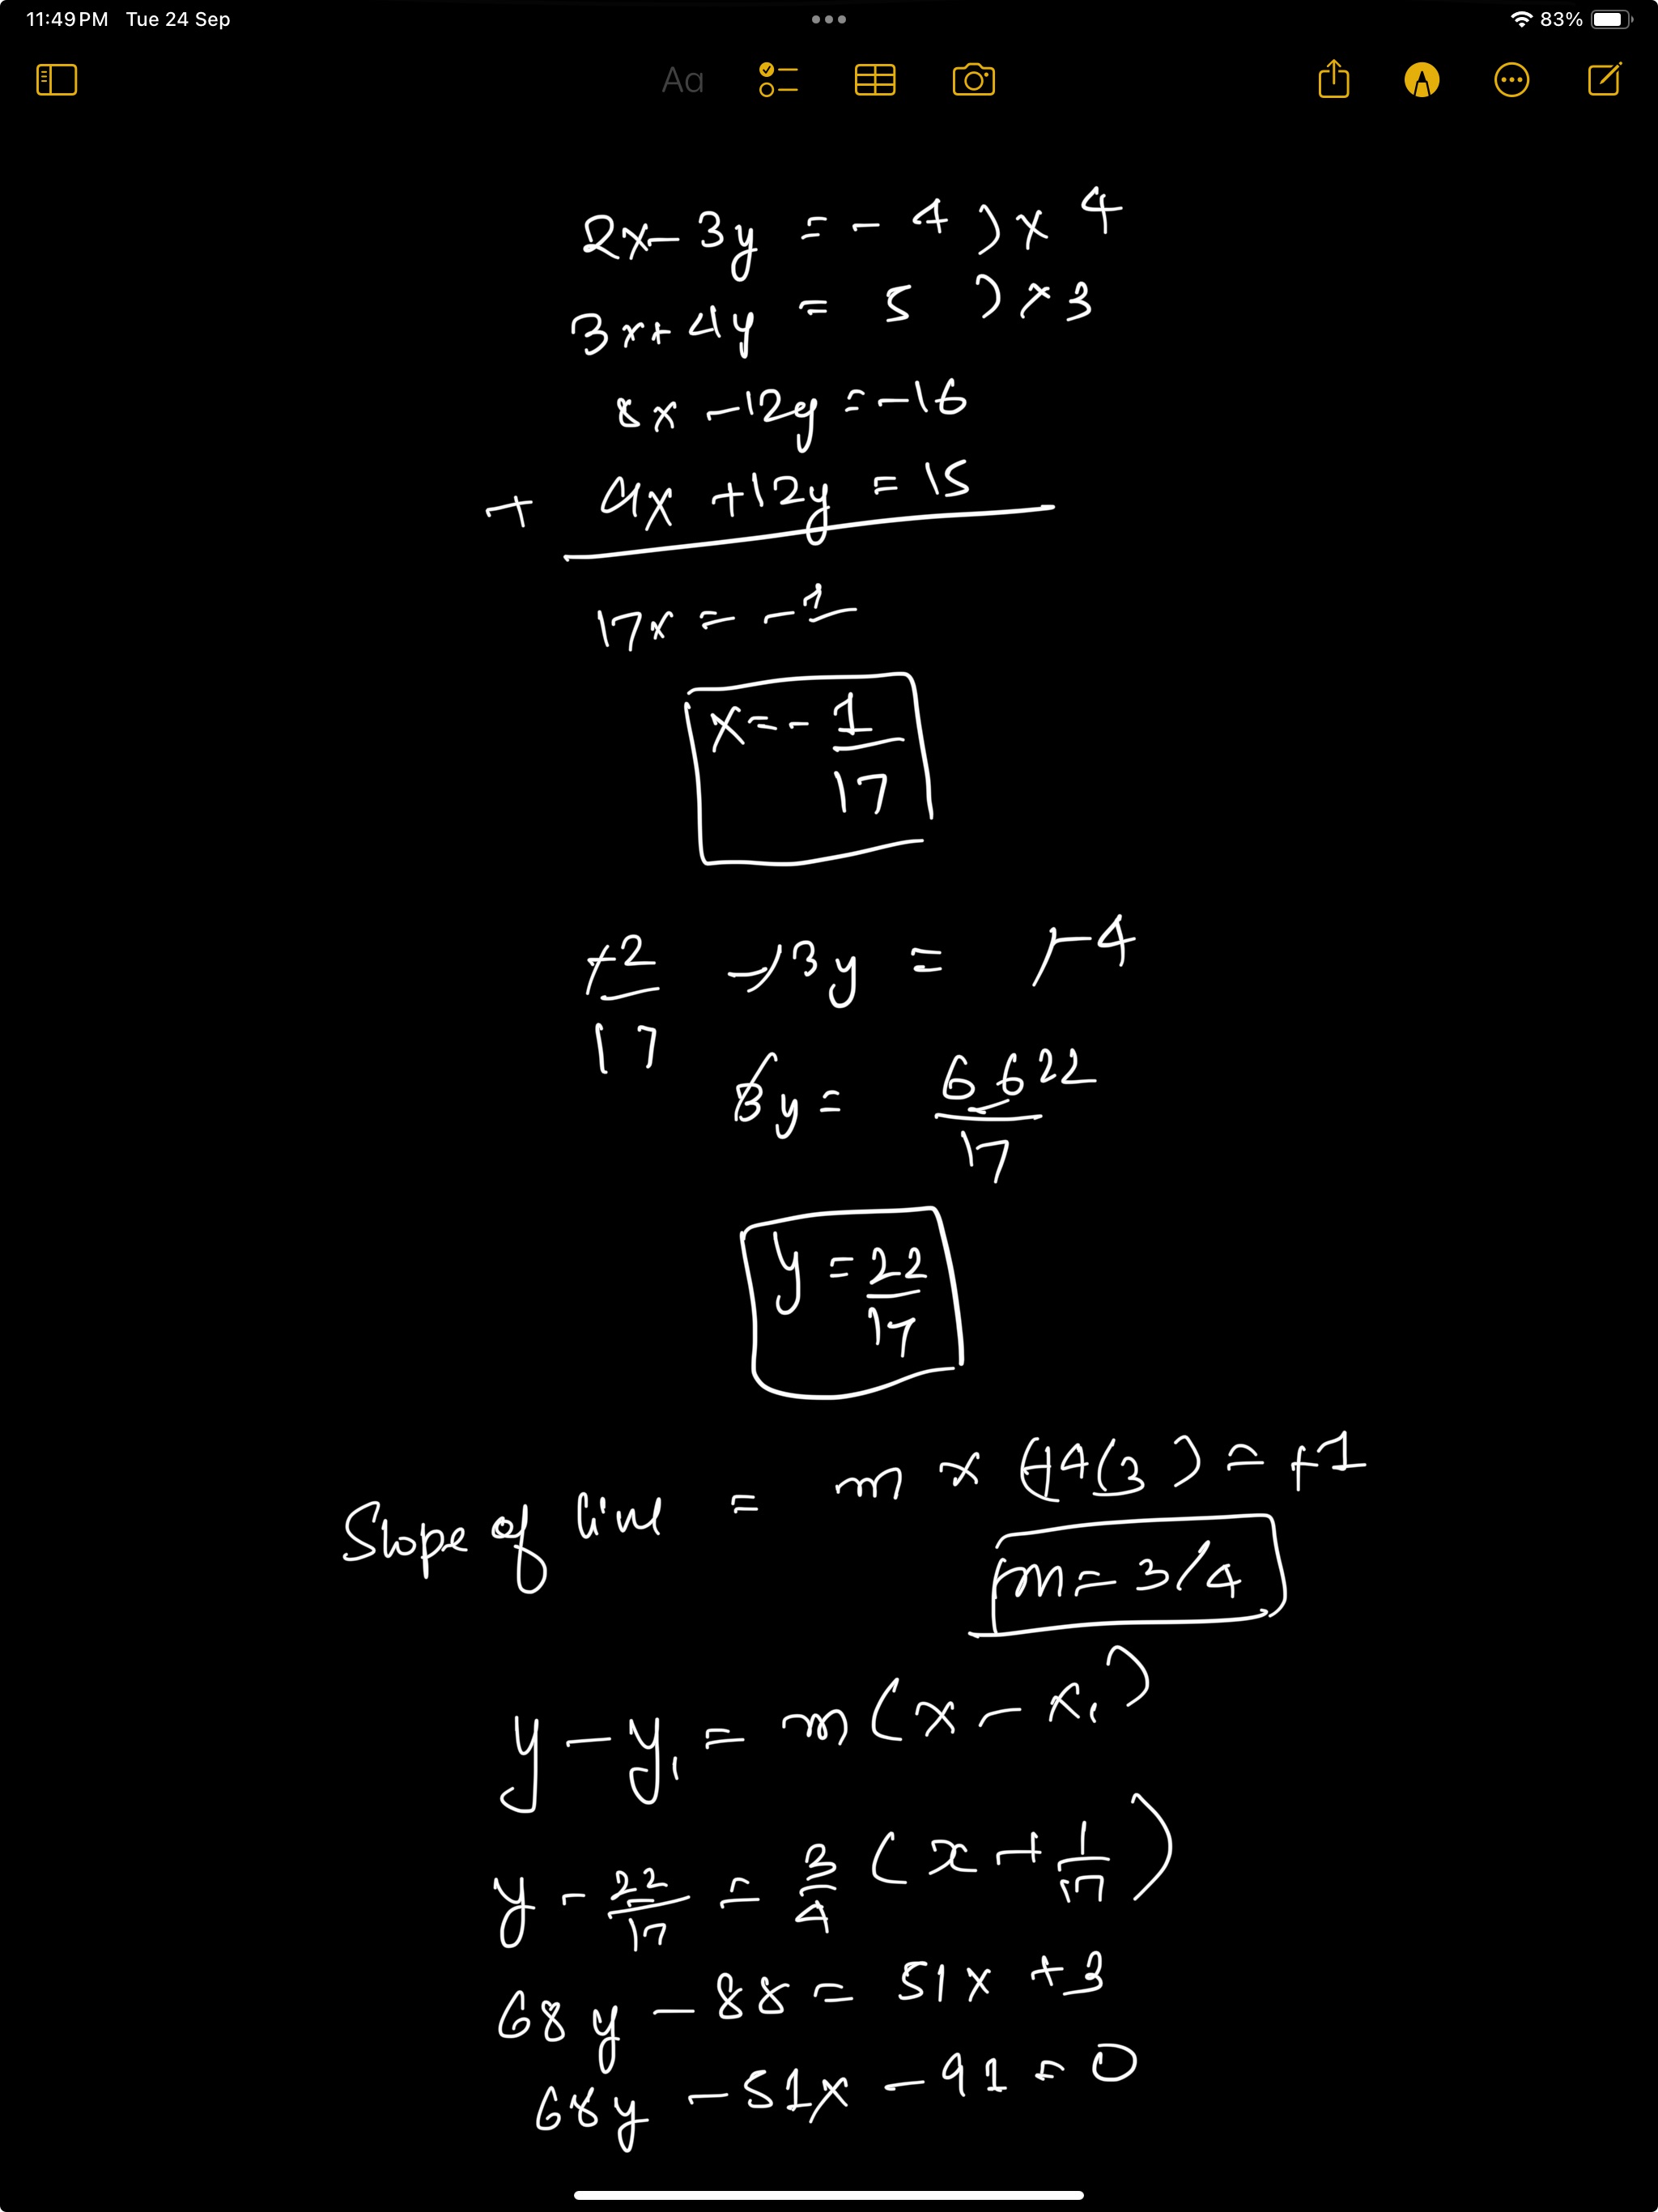 11:49 PM Tue 24 Sep
83%
Aa
2x - 3y = - 4 ) x 4
3x + 4y = 5 ) x 3
8x - 12y = -16
+ 9x + 12y = 15
17x = - 1
x = - 1/17
+2/17 + 3y = +4
3y = 66 22/17
y = 22/17
Slope of line = m x (+4/3) = +1
m = 3/4
y - y₁ = m(x - x₁)
y - 22/17 = 3/4 (x + 1/17)
68y - 88 = 51x + 3
68y - 51x - 91 = 0